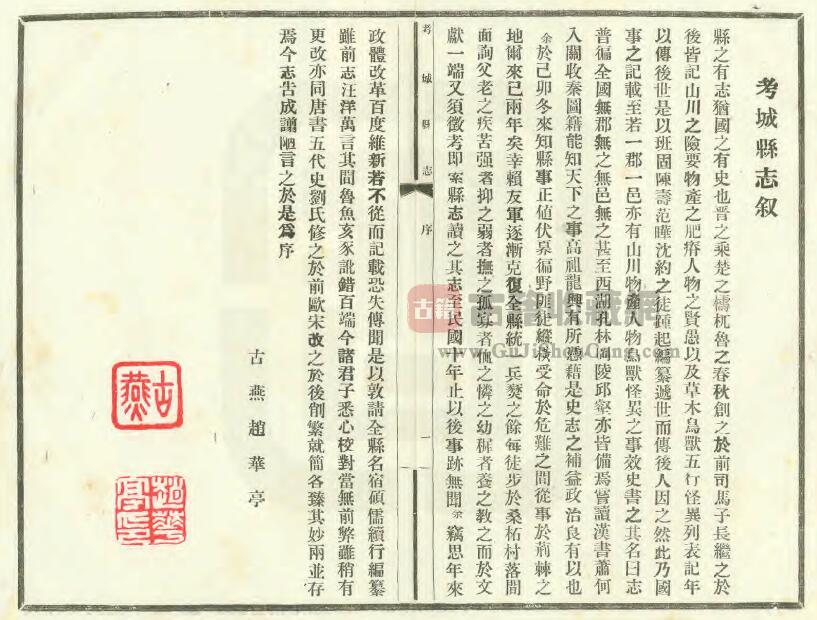 考城縣志叙
縣之有志猶國之有史也晋之乘楚之檮杌魯之春秋創之於前司馬子長繼之於
後皆記山川之險要物產之肥瘠人物之賢愚以及草木鳥獸五行怪異列表記年
以傳後世是以班固陳壽范曄沈約之徒踵起編纂遞世而傳後人因之然此乃國
事之記載至若一郡一邑亦有山川物產人物鳥獸怪異之事效史書之其名曰志
普徧全國無郡無之無邑無之甚至西湖孔林洞陵邱壑亦皆備焉嘗讀漢書蕭何
入關收秦圖籍能知天下之事高祖龍興有所憑藉是史志之補益政治良有以也
余於己卯冬來知縣事正値伏莽徧野匪徒縱橫受命於危難之間從事於荊棘之
地爾來已兩年矣幸賴友軍逐漸克復全縣統一兵燹之餘每徒步於桑柘村落間
面詢父老之疾苦强者抑之弱者撫之孤寡者恤之憐之幼穉者養之敎之而於文
獻一端又須徵考即案縣志讀之其志至民國十年止以後事跡無聞余竊思年來
考城縣志
序
一
政體改革百度維新若不從而記載恐失傳聞是以敦請全縣名宿碩儒續行編纂
雖前志汪洋萬言其間魯魚亥豕訛錯百端今諸君子悉心校對當無前弊雖稍有
更改亦同唐書五代史劉氏修之於前歐宋改之於後削繁就簡各臻其妙兩並存
焉今志告成謭陋言之於是爲序
古燕趙華亭
古燕
趙華亭印
古籍
古籍收藏家
www.GuJiShouCang.com